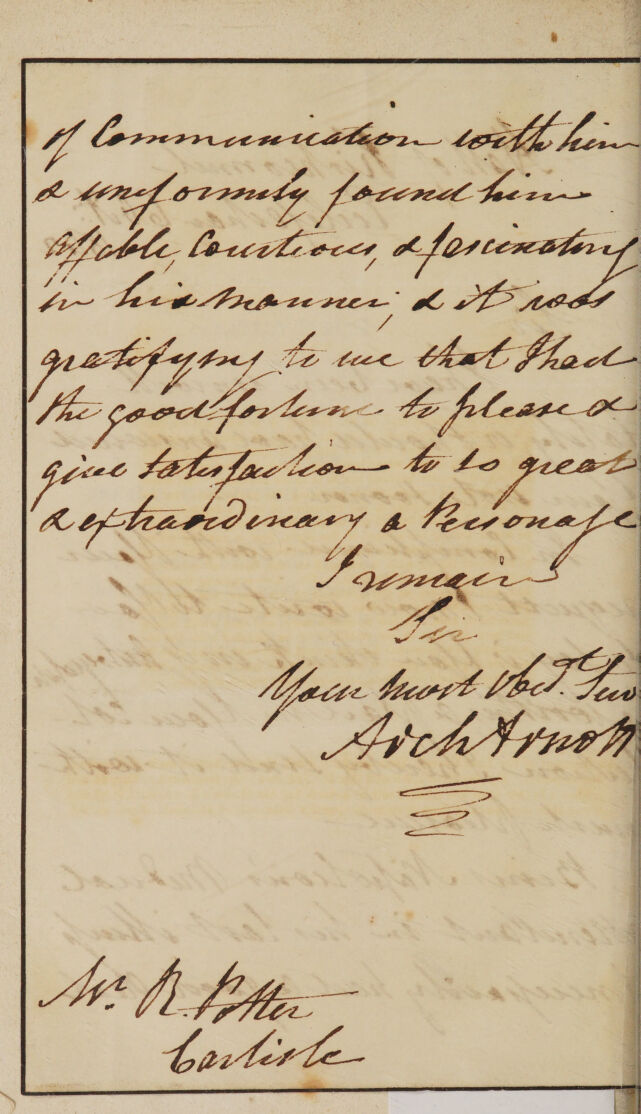 of Communication with him
& uniformily found him
affable, Courtious, & fascinating
in his manner, & it was
gratifying to me that I had
the good fortune to please &
give Satisfaction to so great
& extraordinary a Personage
I remain
Sir
Your most Obedt. Serv
Arch Arnott
Mr. R. Potter
Carlisle